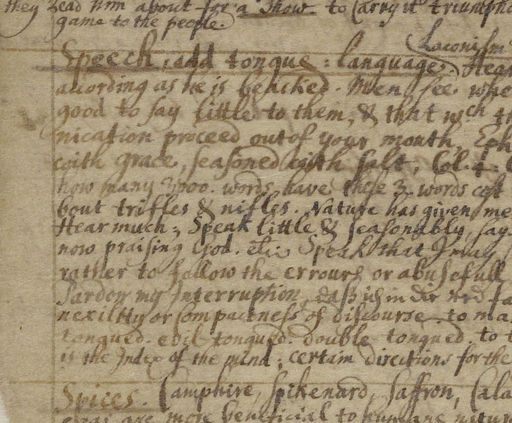 they lead him about for a show. to carry it triumpha
game to the people.
Laconism
Speech, and tongue: language. Hear
according as he is backed. Men see whe
good to say little to them, & that wch th
nication proceed out of your mouth. Eph
with grace, seasoned with salt. Col. 4. 6
how many 3000. words have these 3. words cost
bout trifles & nifles. Nature has given me
Hear much; Speak little & seasonably, say
now praising God. etc. Speak that I may
rather to follow the errours or abusefull
Pardon my Interruption, daß ich in die red fa
nexility or compactness of discourse. to ma
tongued. evil tongued. double tongued to t
is the Index of the mind; certain directions for the
Spices. Camphire, Spikenard, Saffron, Cala
are more beneficial to humane nature